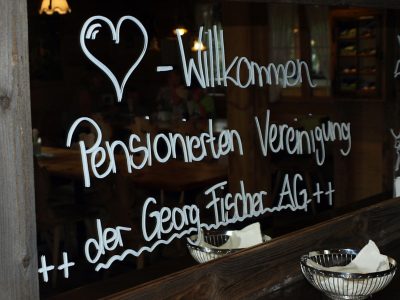 -Willkommen
Pensionierten Vereinigung
++ der Georg Fischer AG++